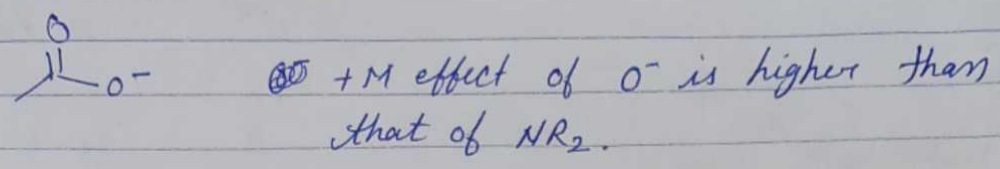 O
O⁻ +M effect of O⁻ is higher than
that of NR₂.